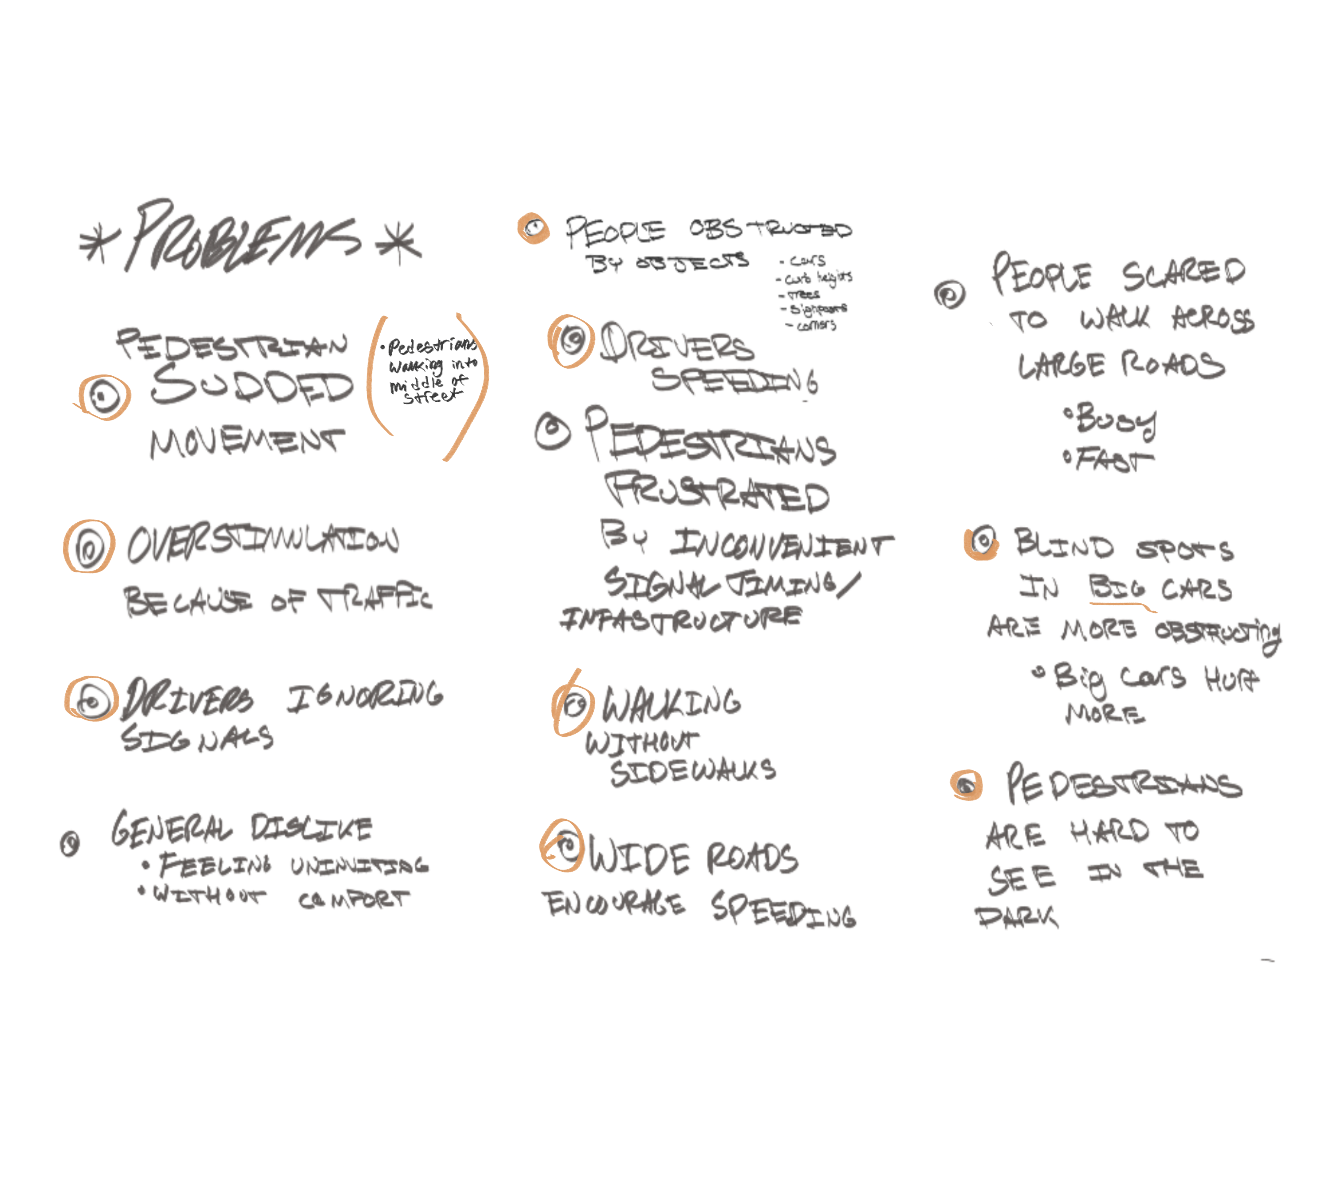 * PROBLEMS *
PEDESTRIAN
SUDDED
MOVEMENT
• Pedestrians
walking into
middle of
street
OVERSTIMULATION
BECAUSE OF TRAFFIC
DRIVERS IGNORING
SIGNALS
GENERAL DISLIKE
• FEELING UNINVITING
• WITHOUT COMFORT
PEOPLE OBSTRUCTED
BY OBJECTS
- cars
- curb heights
- trees
- signposts
- corners
DRIVERS
SPEEDING
PEDESTRIANS
FRUSTRATED
BY INCONVENIENT
SIGNAL TIMING/
INFASTRUCTURE
WALKING
WITHOUT
SIDEWALKS
WIDE ROADS
ENCOURAGE SPEEDING
PEOPLE SCARED
TO WALK ACROSS
LARGE ROADS
• BUSY
• FAST
BLIND SPOTS
IN BIG CARS
ARE MORE OBSTRUCTING
• Big Cars HURT
MORE
PEDESTRIANS
ARE HARD TO
SEE IN THE
DARK